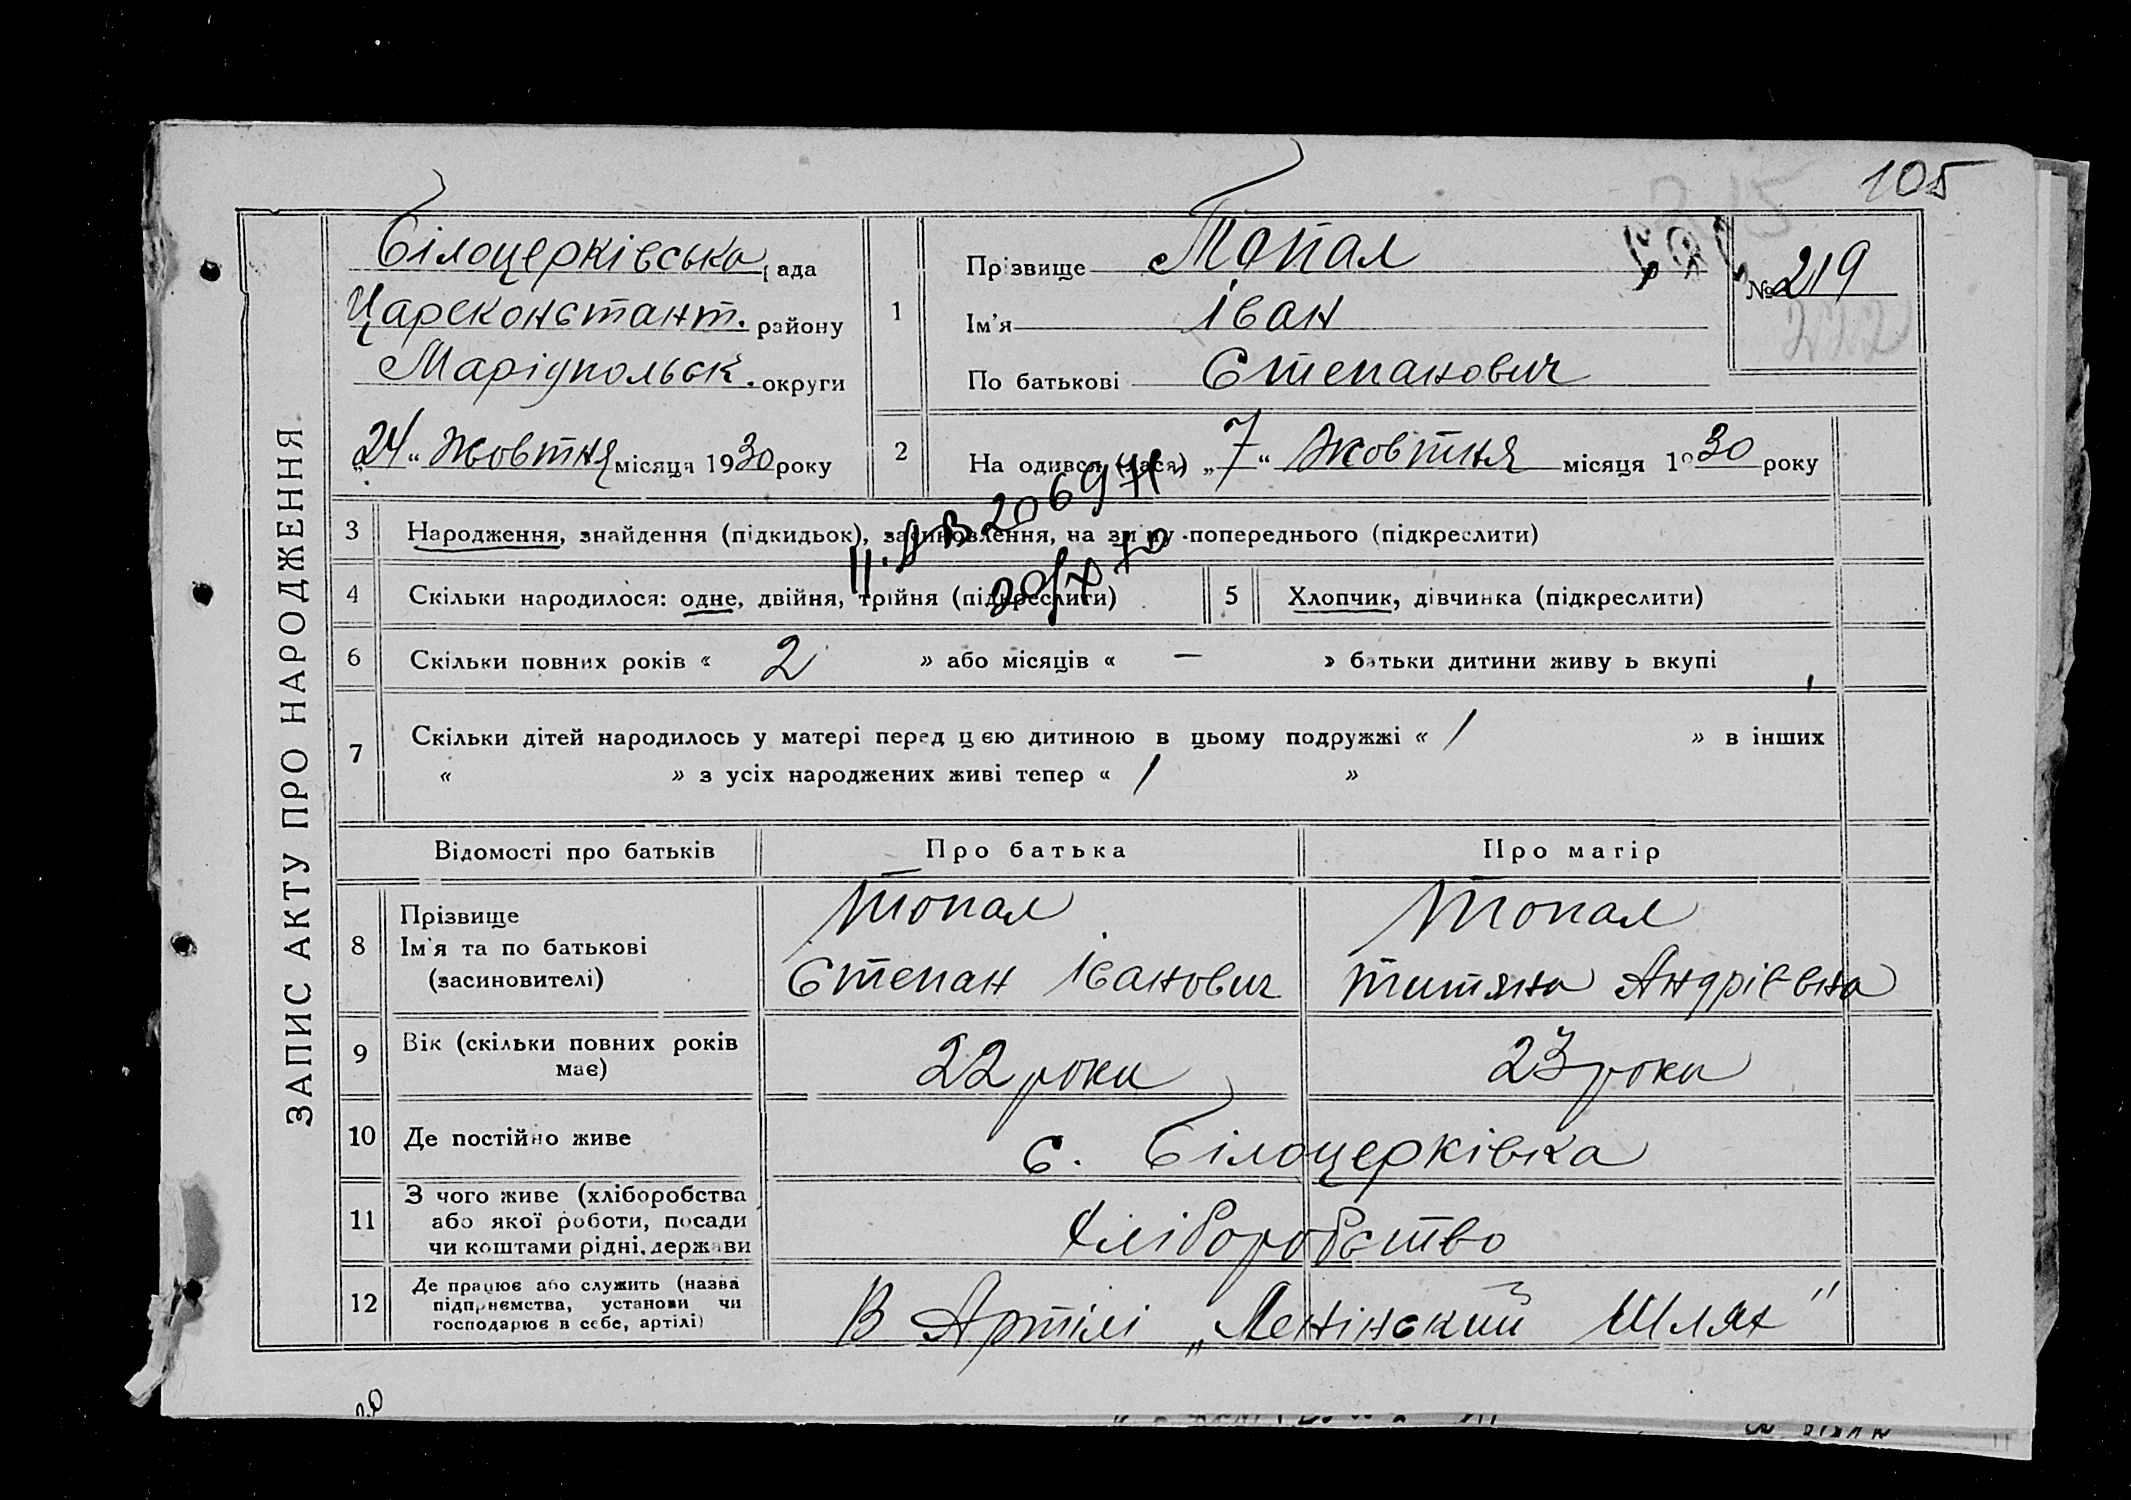 105
315
ЗАПИС АКТУ ПРО НАРОДЖЕННЯ.
Білоцерківська рада
Цареконстант. району
Маріупольськ. округи
„24“ Жовтня місяця 1930 року
1
Прізвище Топал
Ім'я Іван
По батькові Степанович
№ 219
222
2
На одився (лася) „7“ Жовтня місяця 1930 року
3 Народження, знайдення (підкидьок), засиновлення, на зміну попереднього (підкреслити)
4 Скільки народилося: одне, двійня, трійня (підкреслити)
5 Хлопчик, дівчинка (підкреслити)
6 Скільки повних років « 2 » або місяців « — » батьки дитини живу ь вкупі
7 Скільки дітей народилось у матері перед цією дитиною в цьому подружжі « 1 » в інших
« » з усіх народжених живі тепер « 1 »
Відомості про батьків
Про батька
Про матір
8 Прізвище
Ім'я та по батькові
(засиновителі)
Топал
Степан Іванович
Топал
Титяна Андрієвна
9 Вік (скільки повних років
має)
22 роки
23 роки
10 Де постійно живе
с. Білоцерківка
11 З чого живе (хліборобства
або якої роботи, посади
чи коштами рідні, держави
Хліборобство
12 Де працює або служить (назва
підприємства, установи чи
господарює в себе, артілі)
В Артілі „Ленінский Шлях"